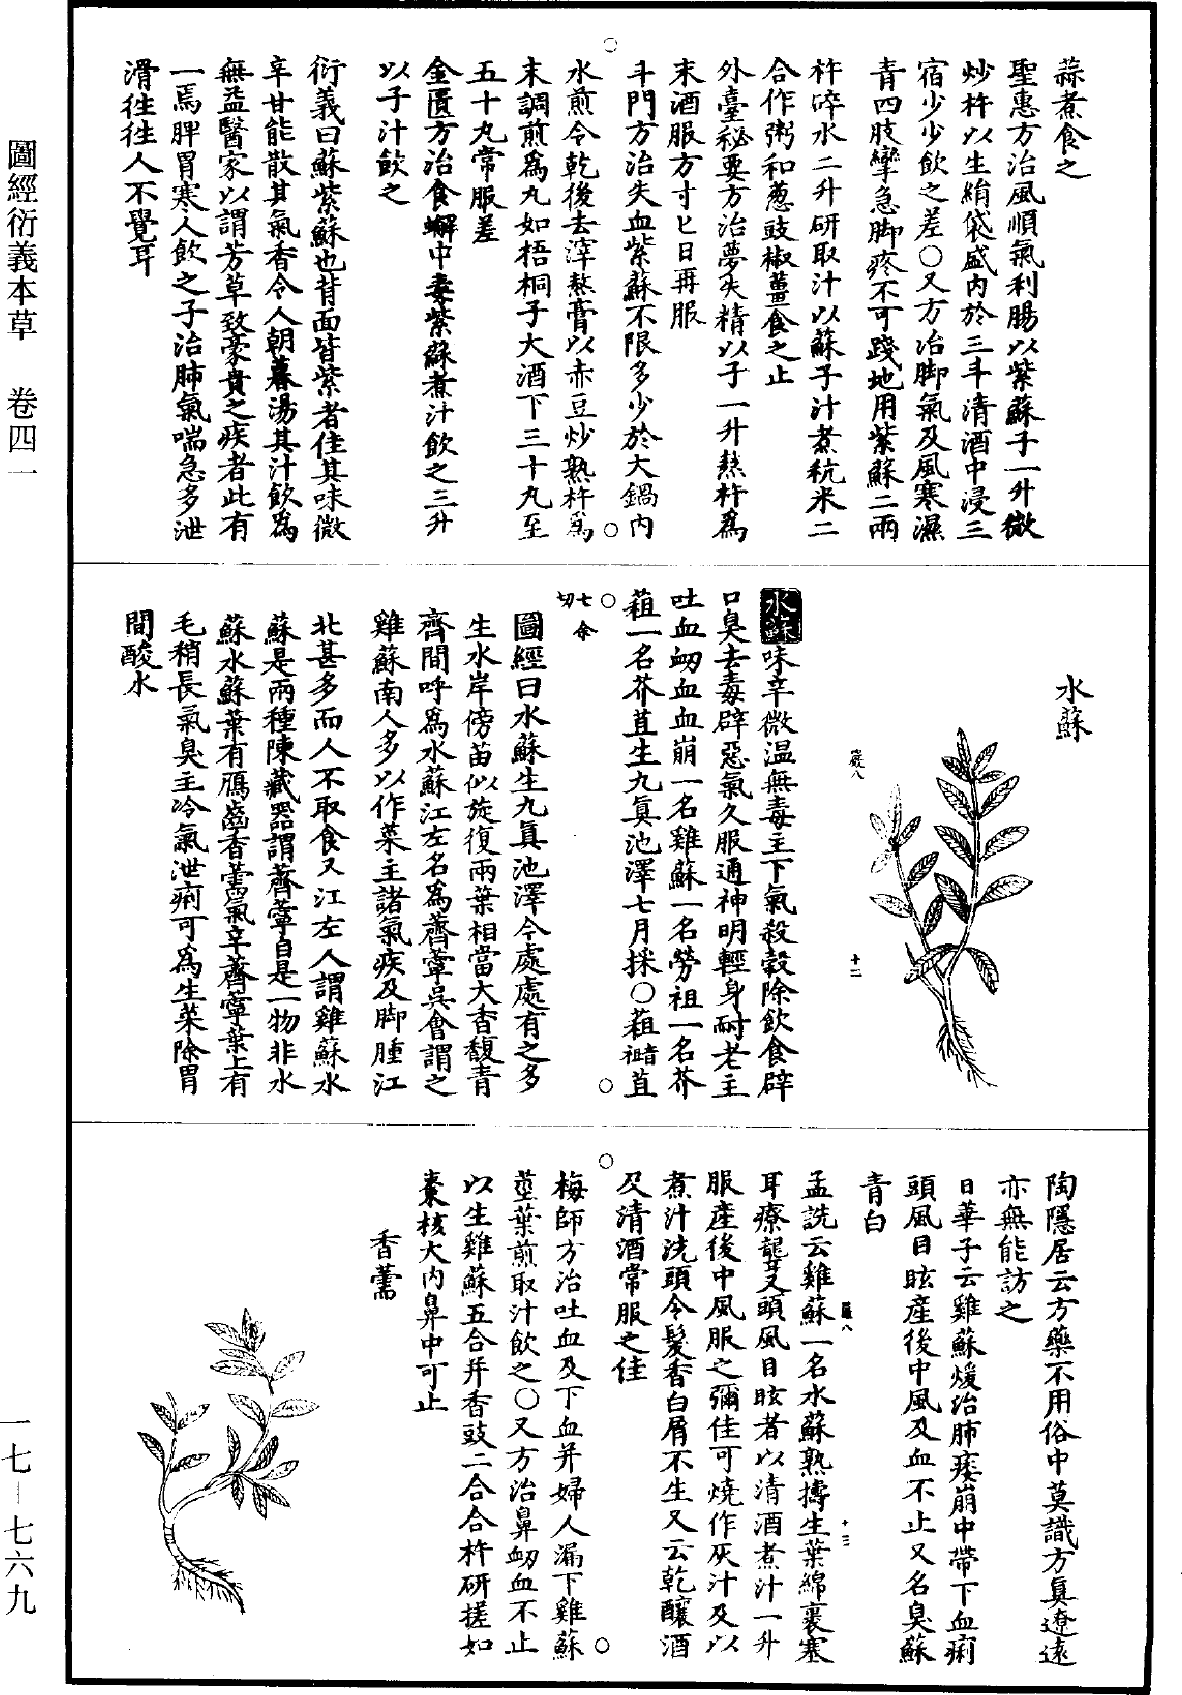 蒜煮食之
聖惠方治風順氣利腸以紫蘇子一升微
炒杵以生絹袋盛內於三斗清酒中浸三
宿少少飲之差○又方治脚氣及風寒濕
青四肢攣急脚疼不可踐地用紫蘇二兩
杵碎水二升研取汁以蘇子汁煮秔米二
合作粥和葱豉椒薑食之止
外臺秘要方治夢失精以子一升熬杵爲
末酒服方寸匕日再服
斗門方治失血紫蘇不限多少於大鍋內
水煎令乾後去滓熬膏以赤豆炒熟杵爲
末調煎爲丸如梧桐子大酒下三十丸至
五十丸常服差
金匱方治食蠏中毒紫蘇煮汁飲之三升
以子汁飲之
衍義曰蘇紫蘇也背面皆紫者佳其味微
辛甘能散其氣香令人朝暮湯其汁飲爲
無益醫家以謂芳草致豪貴之疾者此有
一焉脾胃寒人飲之子治肺氣喘急多泄
滑徃徃人不覺耳
水蘇
水蘇味辛微温無毒主下氣殺穀除飲食辟
口臭去毒辟惡氣久服通神明輕身耐老主
吐血衂血血崩一名雞蘇一名勞祖一名芥
蒩一名芥苴生九真池澤七月採○蒩𥚃苴
七余
切
圖經曰水蘇生九真池澤今處處有之多
生水岸傍苗似旋復兩葉相當大香馥青
齊間呼爲水蘇江左名爲薺薴吳會謂之
雞蘇南人多以作菜主諸氣疾及脚腫江
北甚多而人不取食又江左人謂雞蘇水
蘇是兩種陳藏器謂薺薴自是一物非水
蘇水蘇葉有鴈齒香薷氣辛薺薴葉上有
毛稍長氣臭主冷氣泄痢可爲生菜除胃
間酸水
陶隱居云方藥不用俗中莫識方真遼遠
亦無能訪之
日華子云雞蘇煖治肺痿崩中帶下血痢
頭風目眩產後中風及血不止又名臭蘇
青白
孟詵云雞蘇一名水蘇熟擣生葉綿裹塞
耳療聾又頭風目眩者以清酒煮汁一升
服產後中風服之彌佳可燒作灰汁及以
煮汁洗頭令髮香白屑不生又云乾釀酒
及清酒常服之佳
梅師方治吐血及下血并婦人漏下雞蘇
莖葉煎取汁飲之○又方治鼻衂血不止
以生雞蘇五合并香豉二合合杵研搓如
棗核大內鼻中可止
香薷
圖經衍義本草 卷四一
一七—七六九